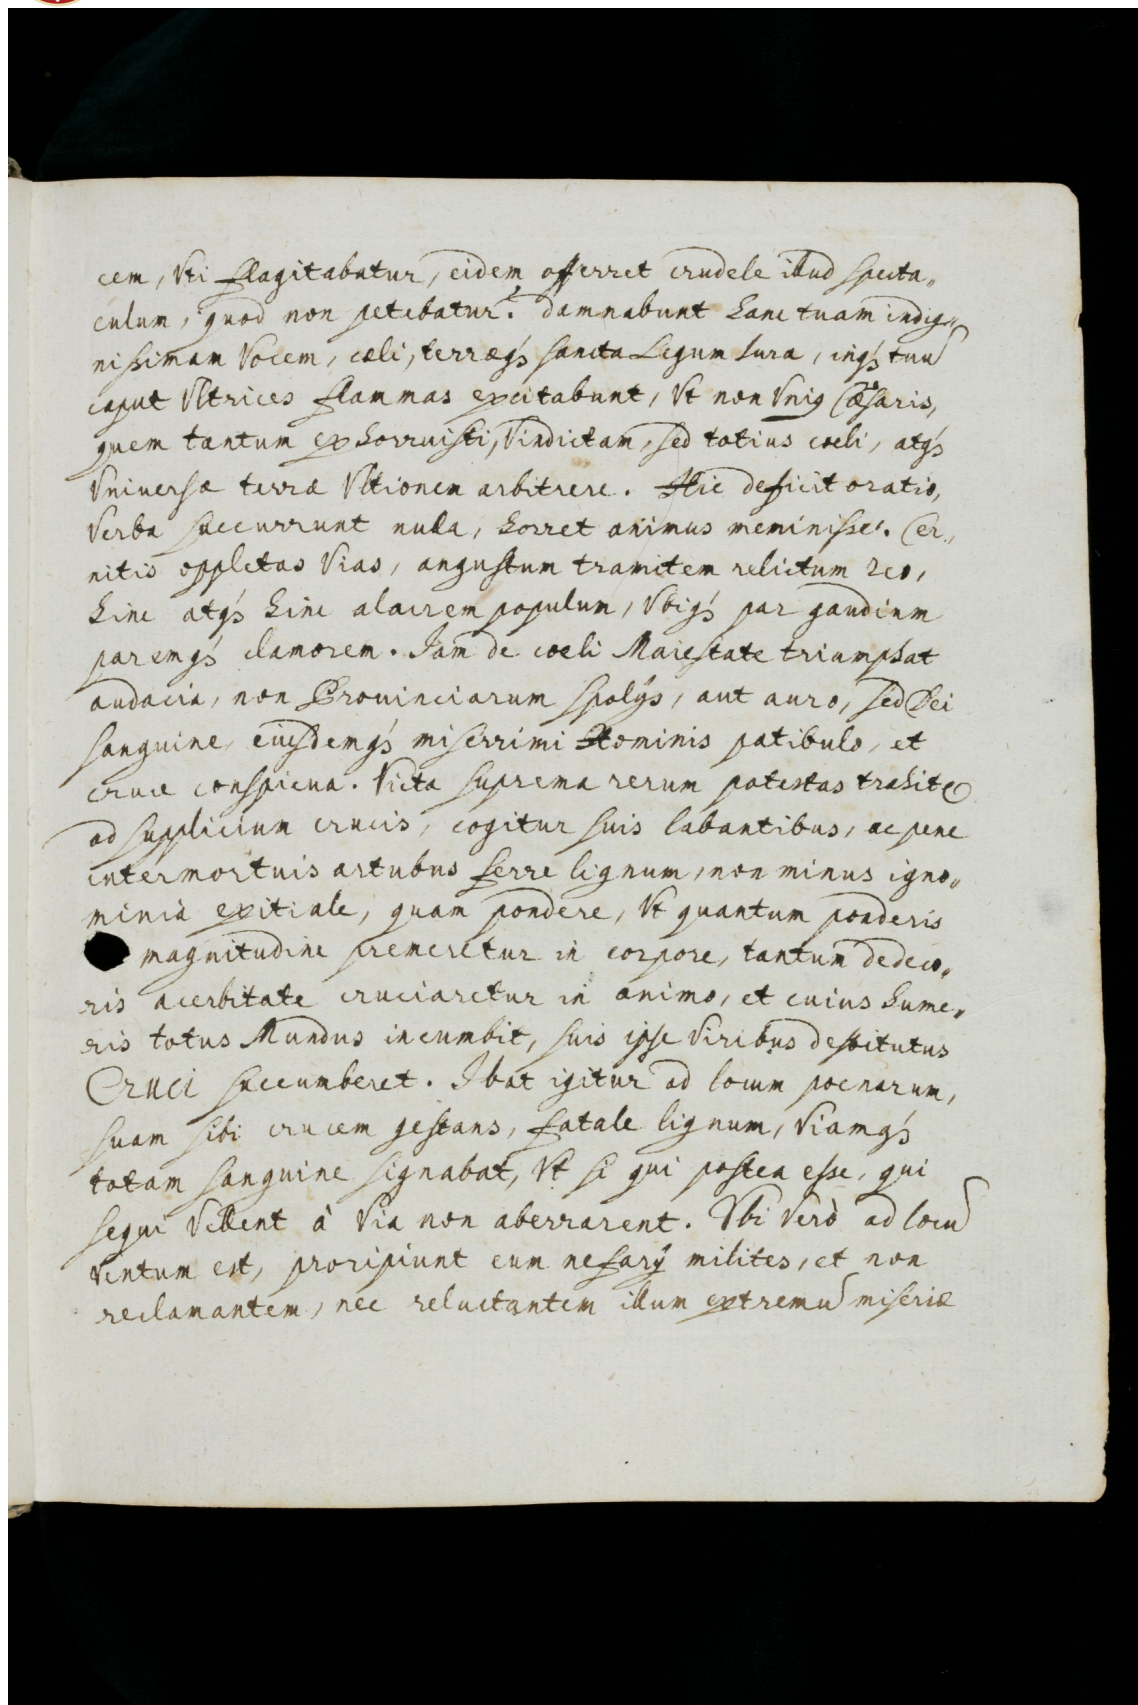 cem, Vti flagitabatur, eidem offerret crudele illud specta„
culum, quod non petebatur? damnabunt hanc tuam indig„
nissimam Vocem, cæli, terræq́₃ sancta Legum Iura, inq́₃ tuũ
caput Vltrices flammas excitabunt, Vt non Vniꝰ Cæsaris,
quem tantum exhorruisti, Vindictam, sed totius cœli, atq́₃
Vniuersæ terræ Vltionem arbitrere. Hic deficit oratio,
Verba succurrunt nulla, horret animus meminisse. Cer„
nitis oppletas Vias, angustum tramitem relictum reo,
hinc atq́₃ hinc alacrem populum, Vbiq́₃ par gaudium
paremq́₃ clamorem. Iam de cœli Maiestate triumphat
audacia, non Prouinciarum spolijs, aut auro, sed Dei
sanguine, eiusdemq́₃ miserrimi Hominis patibulo, et
cruce conspicua. Victa suprema rerum potestas trahit᷑
ad supplicium crucis, cogitur suis labantibus, ac pene
intermortuis artubus ferre lignum, non minus igno„
miniâ exitiale, quam pondere, Vt quantum ponderis
magnitudine premeretur in corpore, tantum dedeco„
ris acerbitate cruciaretur in animo, et cuius hume„
ris totus Mundus incumbit, suis ipse Viribus destitutus
Cruci succumberet. Ibat igitur ad locum poenarum,
suam sibi crucem gestans, fatale lignum, Viamq́₃
totam sanguine signabat, Vt si qui postea esse, qui
sequi Vellent à Via non aberrarent. Vbi Verò ad locũ
Ventum est, proripiunt eum nefarij milites, et non
reclamantem, nec reluctantem illum extremũ miseriæ